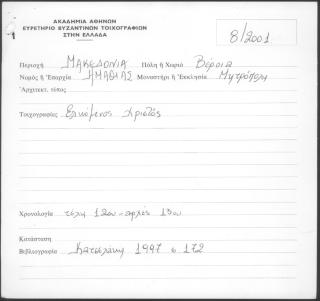 ΑΚΑΔΗΜΙΑ ΑΘΗΝΩΝ
ΕΥΡΕΤΗΡΙΟ ΒΥΖΑΝΤΙΝΩΝ ΤΟΙΧΟΓΡΑΦΙΩΝ
ΣΤΗΝ ΕΛΛΑΔΑ
8/2001
Περιοχή ΜΑΚΕΔΟΝΙΑ Πόλη ή Χωριό Βέροια
Νομός ή Ἐπαρχία ΗΜΑΘΙΑΣ Μοναστήρι ή Ἐκκλησία Μητρόπολη
Ἀρχιτεκτ. τύπος
Τοιχογραφίες Ελκόμενος Χριστός
Χρονολογία τέλη 12ου - αρχές 13ου
Κατάσταση
Βιβλιογραφία 1997 σ 172